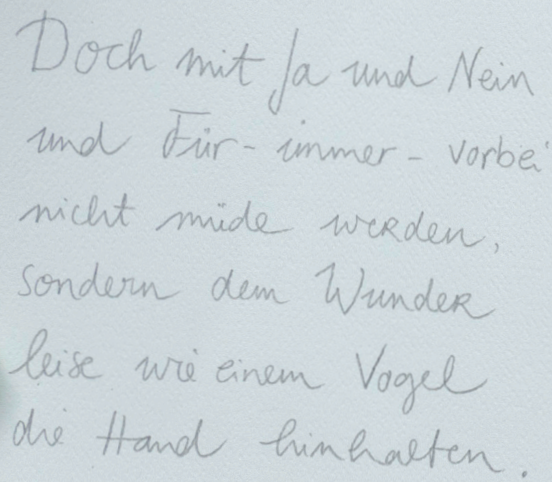 Doch mit Ja und Nein
und Für-immer-vorbei
nicht müde werden,
sondern dem Wunder
leise wie einem Vogel
die Hand hinhalten.